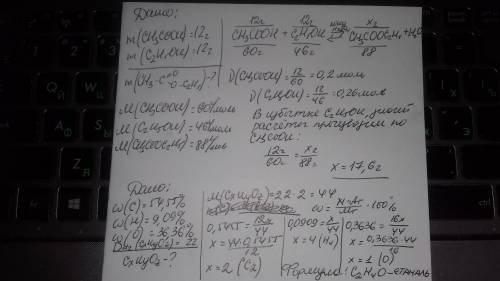 Дано:
m(CH₃COOH)=12г
m(C₂H₅OH)=12г
m(CH₃-C=O-O-C₂H₅)-?
M(CH₃COOH)=60г/моль
M(C₂H₅OH)=46г/моль
M(CH₃COOC₂H₅)=88г/моль
12г 12г xг
CH₃COOH + C₂H₅OH ⇄ CH₃COOC₂H₅+H₂O
60г 46г 88
ν(CH₃COOH)=12/60=0,2моль
ν(C₂H₅OH)=12/46=0,26моль
В избытке C₂H₅OH, значит
рассчёт производим по
CH₃COOH:
12г/60г=xг/88г
x=17,6г
Дано:
ω(C)=54,55%
ω(H)=9,09%
ω(O)=36,36%
D H₂(CxHyOz)=22
CxHyOz-?
M(CxHyOz)=22·2=44
ω=N·Ar/Mr·100%
0,5455=12x/44
x=44·0,5455/12
x=2 (C₂)
0,0909=x/44
x=4(H₄)
0,3636=16x/44
x=0,3636·44/16
x=1 (O)
Формула: C₂H₄O-этаналь